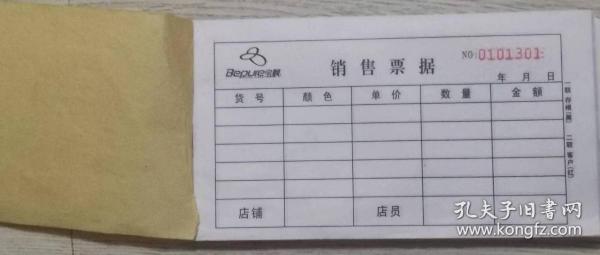 Bepure铂金枫
销售票据
NO:0101301
年 月 日
货号 颜色 单价 数量 金额
店铺 店员
一联 存根(黑) 二联 客户(红)
孔夫子旧书网
www.kongfz.com